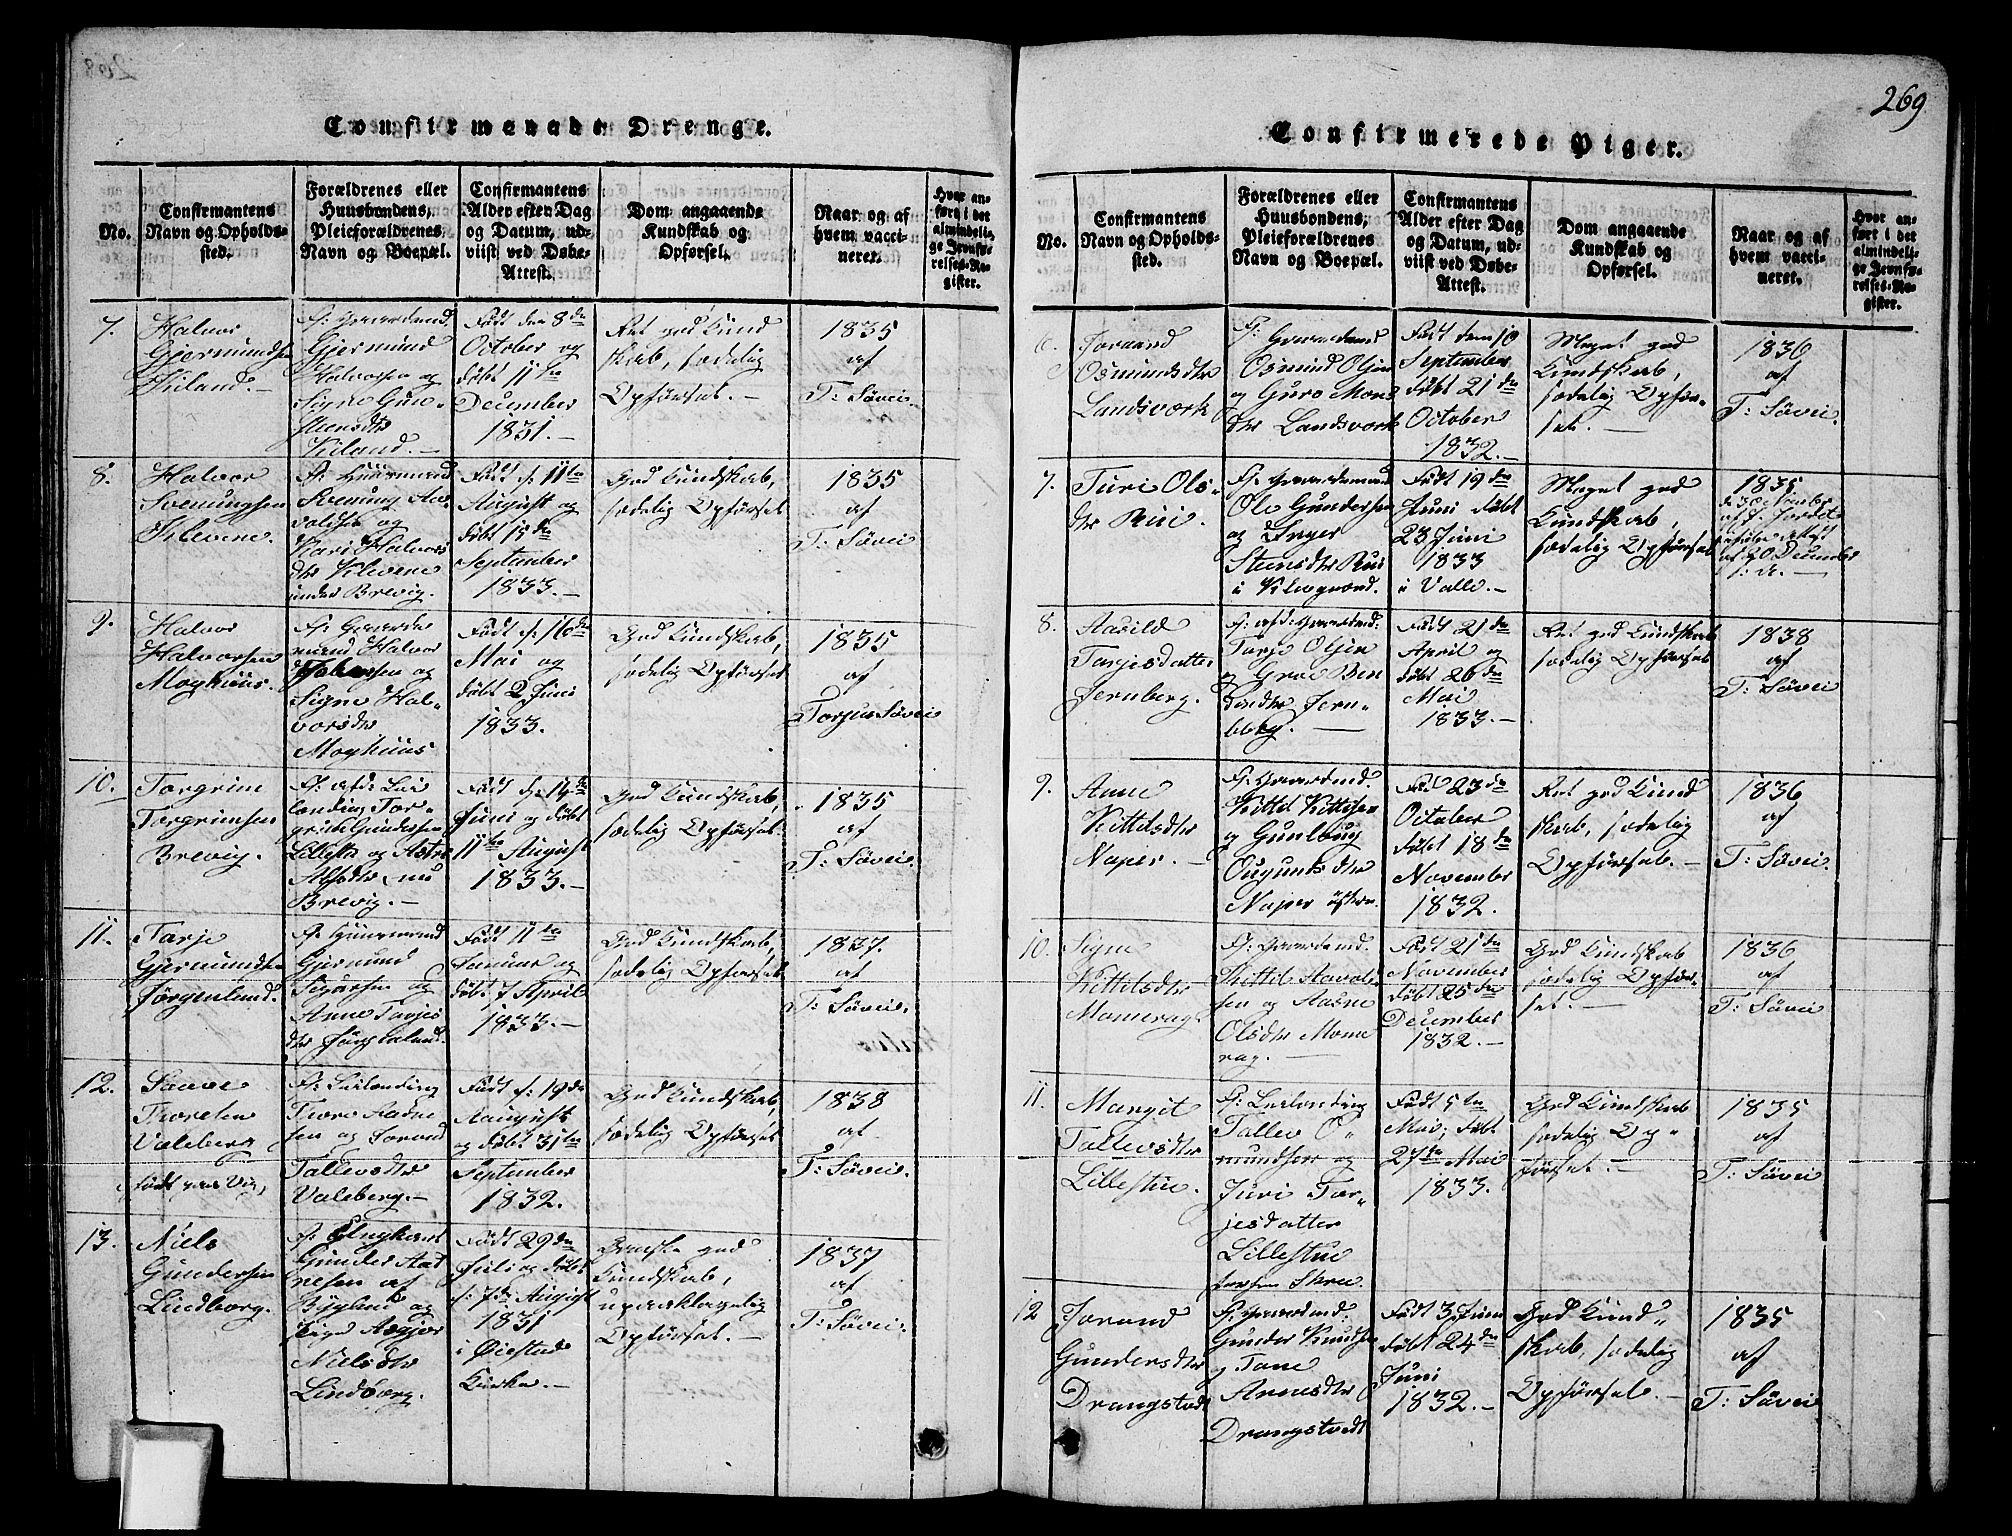 269
Confirmerede Drenge.
No.
Confirmantens
Navn og Opholds-
sted.
Forældrenes eller
Huusbondens,
Pleieforældrenes
Navn og Boepæl.
Confirmantens
Alder efter Dag
og Datum, ud-
viist ved Døbe-
Attest.
Dom angaaende
Kundskab og
Opførsel.
Naar og af
hvem vacci-
neret.
Hvor an-
ført i det
almindeli-
ge Jevnfø-
relses-Re-
gister.
7.
Halvor
Gjermundsen
Kiland.
F: Gaardmd.
Gjermund
Halvorsen og
Signe Gun-
steensdtr
Kiland.
Født den 8de
October og
døbt 11te
December
1831.
Ret god Kund
skab, sædelig
Opførsel.
1835
af
T: Søvei.
8.
Halvor
Svenungsen
Klevene.
F: Huusmand
Svenung Aa-
voldsen og
Kari Halvors
dtr Klevene
under Brevig.
Født d: 11te
August og
døbt 15de
September
1833.
God Kundskab,
sædelig Opførsel
1835
af
T: Søvei
9.
Halvor
Halvorsen
Moghuus.
F: Gaard-
mand Halvor
og
Signe Hal-
vorsdtr
Moghuus
Født d: 16de
Mai og
døbt 2 Juni
1833.
God Kundskab,
sædelig Opførsel
1835
af
Torjus Søvei
10.
Torgrim
Torgrimsen
Brevig.
F: afd: Lei-
lending Tor-
grim Gundersen
Lillestu og
nu
Brevig.
Født d: 14de
Juni og døbt
11te August
1833.
God Kundskab,
sædelig Opførsel.
1835
af
T: Søvei.
11.
Tarje
Gjermundsen
Jørgenlund.
F: Huusmand
Gjermund
Sigursen og
Anne Tarjes
dtr
Født 11te
Januar og
døbt 7 April
1833.
God Kundskab,
sædelig Opførsel
1837.
af
T: Søvei.
12.
Saave
Toresen
Valeberg
født paa
F: Leilending
Tore Aadne
sen og Torand
Tallevsdtr
Valeberg.
Født d: 19de
Aaugust
og døbt 31te
September
1832.
God Kundskab,
sædelig Opførsel
1838
af
T: Søvei.
13.
Niels
Gundersen
Lindborg.
F:
Gunder Aad
nesen af
Bygland og
Pige Asgjer
Nielsdtr
Lindborg.
Født 29de
Juli og døbt
d: 7de August
1831
i Øiestad
Kirke.
Ganske god
Kundskab,
upaaklagelig
Opførsel.
1837
af
T: Søvei.
Confirmerede Piger.
No.
Confirmantens
Navn og Opholds-
sted.
Forældrenes eller
Huusbondens,
Pleieforældrenes
Navn og Boepæl.
Confirmantens
Alder efter Dag
og Datum, ud-
viist ved Døbe-
Attest.
Dom angaaende
Kundskab og
Opførsel.
Naar og af
hvem vacci-
neret.
Hvor an-
ført i det
almindeli-
ge Jevnfø-
relses-Re-
gister.
6.
Toraand
Osmundsdtr
Landsværk
F: Gaardmand
Osmund Olsen
og Guro Mons
dtr Landsværk
Født den 10
September
døbt 21de
October
1832.
Meget god
Kundskab,
sædelig Opfør-
sel.
1836
af
T: Søvei.
7.
Turi Ols-
dtr Rui.
F: Gaardmand
Ole Gundersen
og Inger
Steensdtr Rui
i
Født 19de
Juni døbt
23 Juni
1833
i Valle.
Meget god
Kundskab,
sædelig Opførsel
1835
af 20 December
8.
Aasild
Tarjesdatter
Jernberg.
F: afd: Gaardmd:
Tarje Olsen
og Groe Ben
dtr Jern-
berg.
Født 21de
April og
døbt 26de
Mai
1833.
Ret god Kundskab
sædelig Opførsel
1838
af
T: Søvei
9.
Anne
Kittilsdtr
Naper.
F: Gaardmd.
Kittil Kittilsen
og Gunloug
Ougundsdtr
Naper østre.
Fød 23de
October
døbt 18de
November
1832.
Ret god Kund
skab, sædelig
Opførsel.
1836
af
T: Søvei.
10.
Signe
Kittilsdtr
Momrag.
F: Gaardmd.
Kittil Aavold-
sen og Aasne
Olsdtr Mom
rag.
Født 21de
November
døbt 25de
December
1832.
God Kundskab
sædelig Opfør-
sel.
1836
af
T: Søvei
11.
Margit
Tallevsdtr
Lillestue.
F: Leilending
Tallev O-
mundsen og
Juri Tar-
jesdatter
Lillestue
Født 5te
Mai, døbt
27de Mai
1833.
God Kundskab
sædelig Op-
førsel.
1835
af
T: Søvei
12
Torand
Gundersdtr
Drangstvedt
F: Gaardmd.
Gunder Knudsen
og Tone
Annesdtr
Drangstvedt
Født 3 Juni
døbt 24de
Juni
1832.
God Kund-
skab, sædelig
Opførsel.
1835
af
T: Søvei